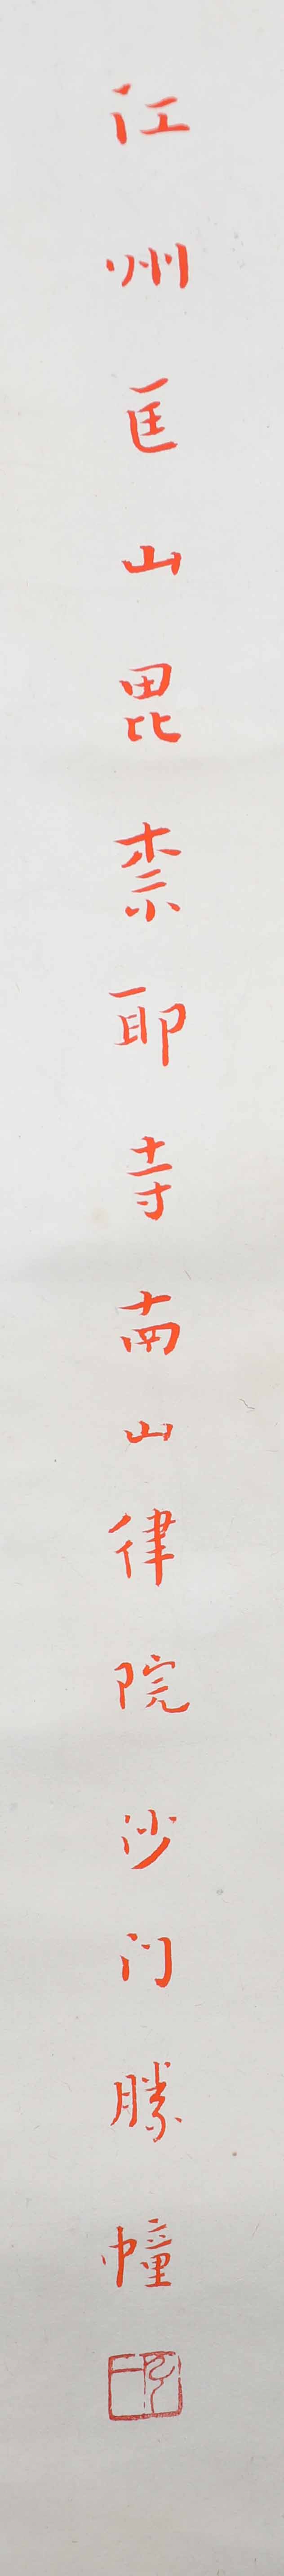 江州匡山毘柰耶寺南山律院沙门勝幢